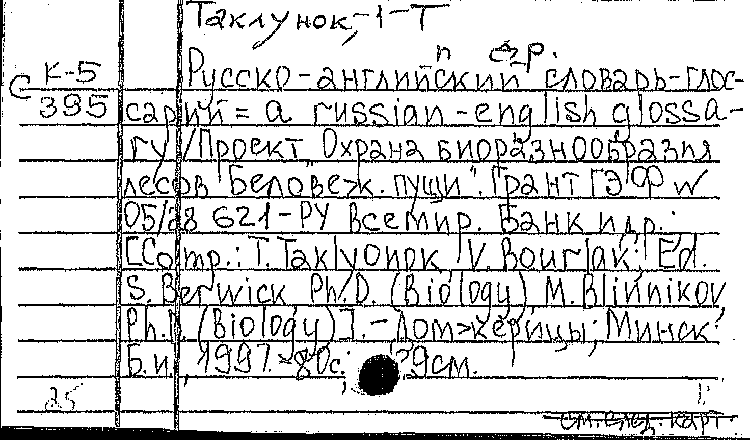 Таклунок,-1-Т
п сзр.
К-5 Русско-английский словарь-глос-
С 395 сарий = a russian-english glossa-
ry / Проект "Охрана биоразнообразия
лесов "Беловеж. пущи". Грант ГЭФ N
05/28 621-РУ Всемир. Банк и др.:
[Comp.: T. Taklyonok, V. Bourlak; Ed.
S. Berwick Ph.D. (Biology) M. Blinnikov,
Ph.D. (Biology)].-Домжерицы; Минск:
Б.и., 1997.-80с.; 29см.
25
см. след. карт